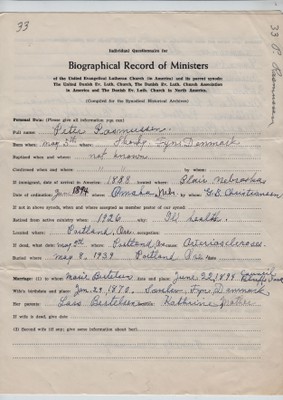 33
33 P. Rasmussen
Individual Questionnaire for
Biographical Record of Ministers
of the United Evangelical Lutheran Church (in America) and its parent synods:
The United Danish Ev. Luth. Church, The Danish Ev. Luth. Church Association
in America and The Danish Ev. Luth. Church in North America.
(Compiled for the Synodical Historical Archives)
Personal Data: (Please give all information you can)
Full name: Peter Rasmussen.
Born when: May 5th where: Fyn, Denmark
Baptized when and where: not known
Confirmed when and where: " " " by whom:
If immigrated, date of arrival in America: 1888 where: Blair, Nebraska
Date of ordination: June 1894 Omaha, Nebr. by whom: G. B. Christiansen
If not in above synods, when and where accepted as member pastor of our synod:
Retired from active ministry when: 1926 why: Ill health.
Located where: Portland, Ore. occupation:
If dead, what date: May 5th where: Portland Arteriosclerosis.
Buried where: May 8, 1939 Portland Ore.
Marriage: (1) to whom: Marie Bertelsen date and place: June 22, 1894 Council Bluffs, Iowa
Wife's birthdate and place: Jan. 29, 1870. Fyn, Denmark
Her parents: Lars Bertelsen Kathrine
If wife is dead, give date
(2) Second wife (if any; give same information about her)